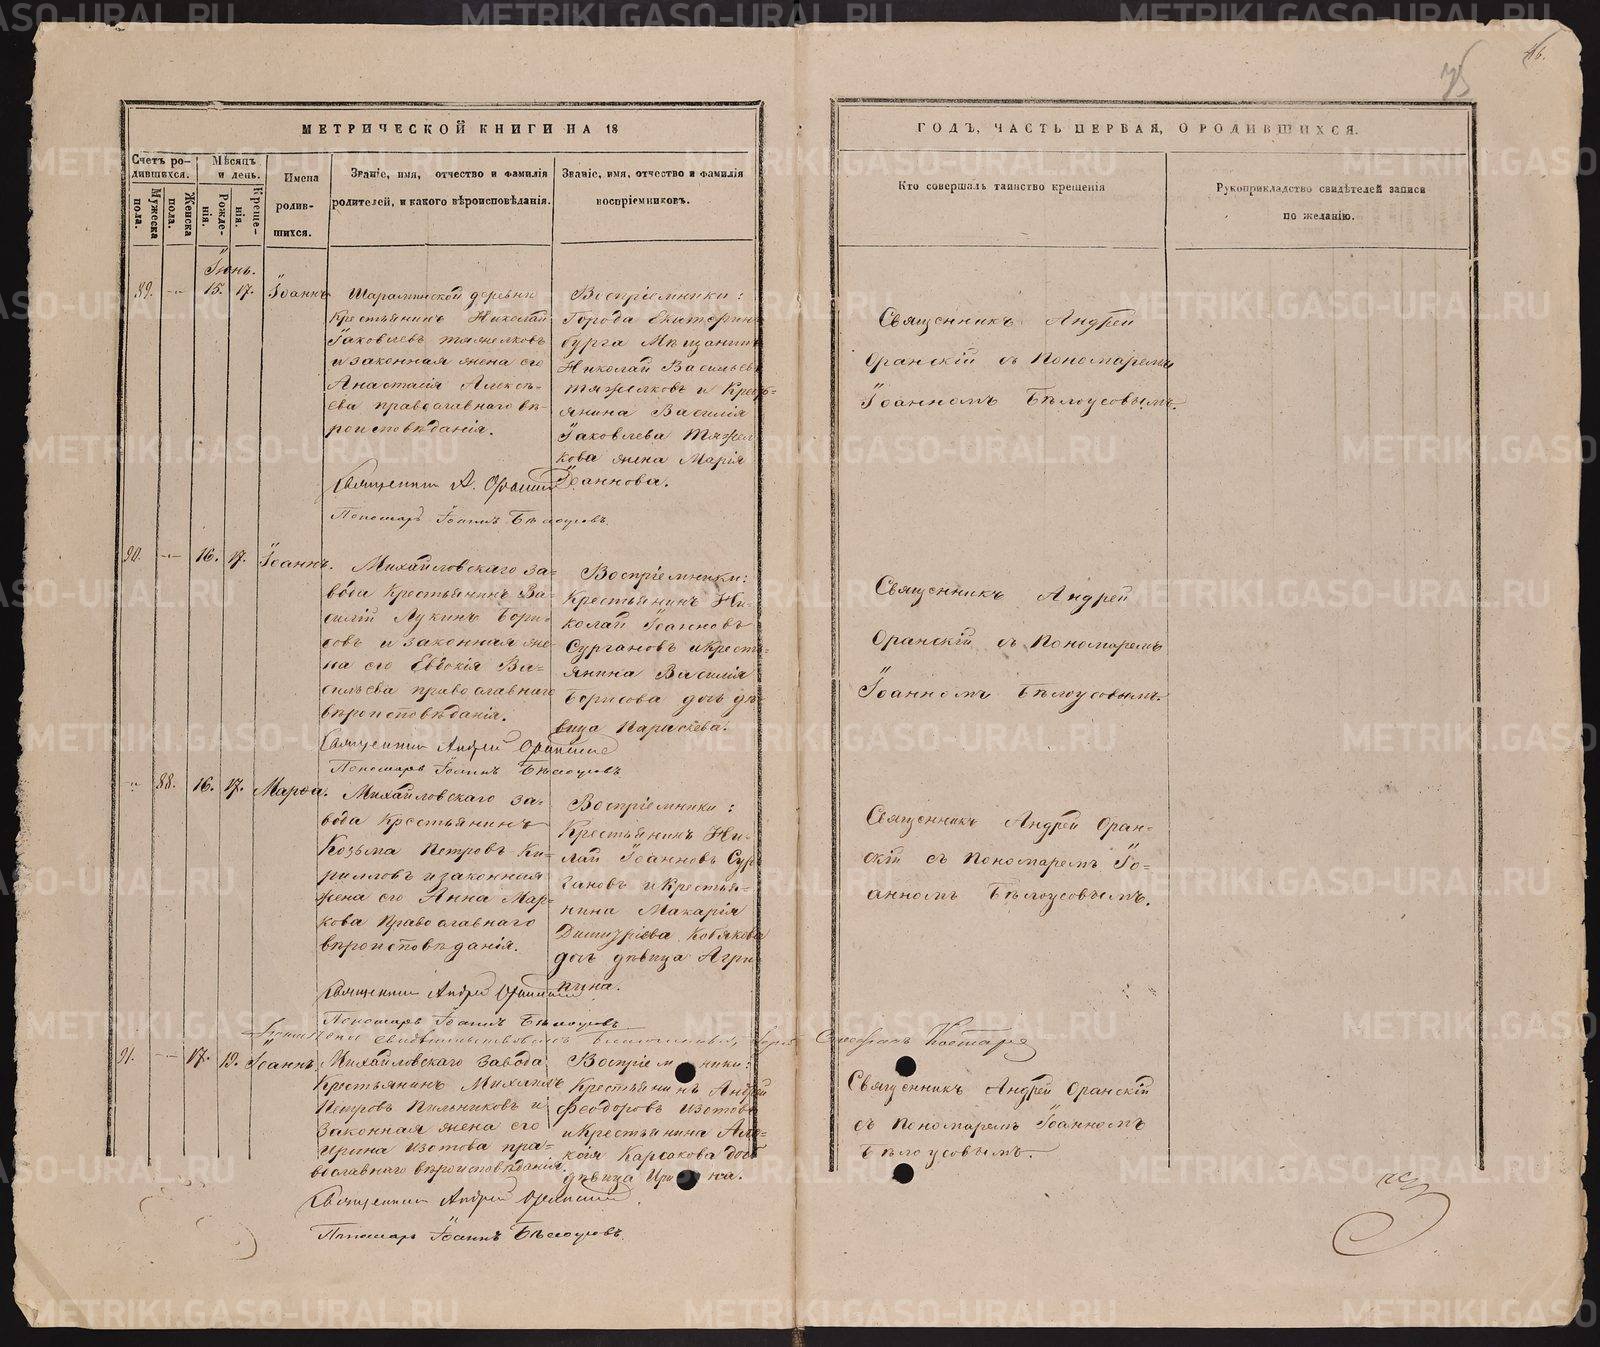 МЕТРИЧЕСКОЙ КНИГИ НА 18
ГОДЪ, ЧАСТЬ ПЕРВАЯ, О РОДИВШИХСЯ.
Счетъ ро-
дившихся.
Мужеска
пола.
Женска
пола.
Мѣсяцъ
и день.
Рожде-
нія.
Креще-
нія.
Имена
родив-
шихся.
Званіе, имя, отчество и фамилія
родителей, и какого вѣроисповѣданія.
Званіе, имя, отчество и фамилія
воспріемниковъ.
Кто совершалъ таинство крещенія
Рукоприкладство свидѣтелей записи
по желанію.
Іюнь.
89. 15. 17. Іоаннъ
Шарамшской деревни
Крестьянинъ Николай
Іаковлевъ Тяжелковъ
и законная жена его
Анастасія Алексѣ-
ева православнаго вѣ-
роисповѣданія.
Священник А. Оранский
Пономарь Іоаннъ Бѣлоусовъ
Воспріемники:
Города Екатерин
бурга Мѣщанинъ
Николай Васильевъ
Тяжелковъ и Кресть-
янина Василія
Іаковлева Тяжел
кова жена Марія
Іоаннова.
Священникъ Андрей
Оранскій съ Пономаремъ
Іоанномъ Бѣлоусовымъ.
90. 16. 17. Іоаннъ.
Михайловскаго за-
вода Крестьянинъ Ва-
силій Лукинъ Бори-
совъ и законная же-
на его Евдокія Ва-
сильева православнаго
вѣроисповѣданія.
Священник Андрей Оранский
Пономарь Іоаннъ Бѣлоусовъ
Воспріемники:
Крестьянинъ Ни-
колай Іоанновъ
Сургановъ и Кресть-
янина Василія
Борисова дочь дѣ-
вица Параскева.
Священникъ Андрей
Оранскій съ Пономаремъ
Іоанномъ Бѣлоусовымъ.
88. 16. 17. Марѳа.
Михайловскаго за-
вода Крестьянинъ
Козьма Петровъ Ки-
рилловъ и законная
жена его Анна Мар-
кова Православнаго
вѣроисповѣданія.
Священник Андрей Оранский
Пономарь Іоаннъ Бѣлоусовъ
Воспріемники:
Крестьянинъ Ни-
лай Іоанновъ Сур-
гановъ и Крестья-
нина Макарія
Димитріева Кобякова
дочь дѣвица Агри-
пина.
Священникъ Андрей Оран-
скій съ Пономаремъ Іо-
анномъ Бѣлоусовымъ.
91. 17. 19. Іоаннъ.
Михайловскаго Завода
Крестьянинъ Михаилъ
Петровъ Пильниковъ и
Законная жена его
Ирина Изотова пра-
вославнаго вѣроисповѣданія.
Священник Андрей Оранский
Пономарь Іоаннъ Бѣлоусовъ.
Воспріемники:
Крестьянинъ Андрей
Феодоровъ Изотовъ
и Крестьянина
Карсакова дочь
дѣвица
Священникъ Андрей Оранскій
съ Пономаремъ Іоанномъ
Бѣлоусовымъ.
METRIKI.GASO-URAL.RU